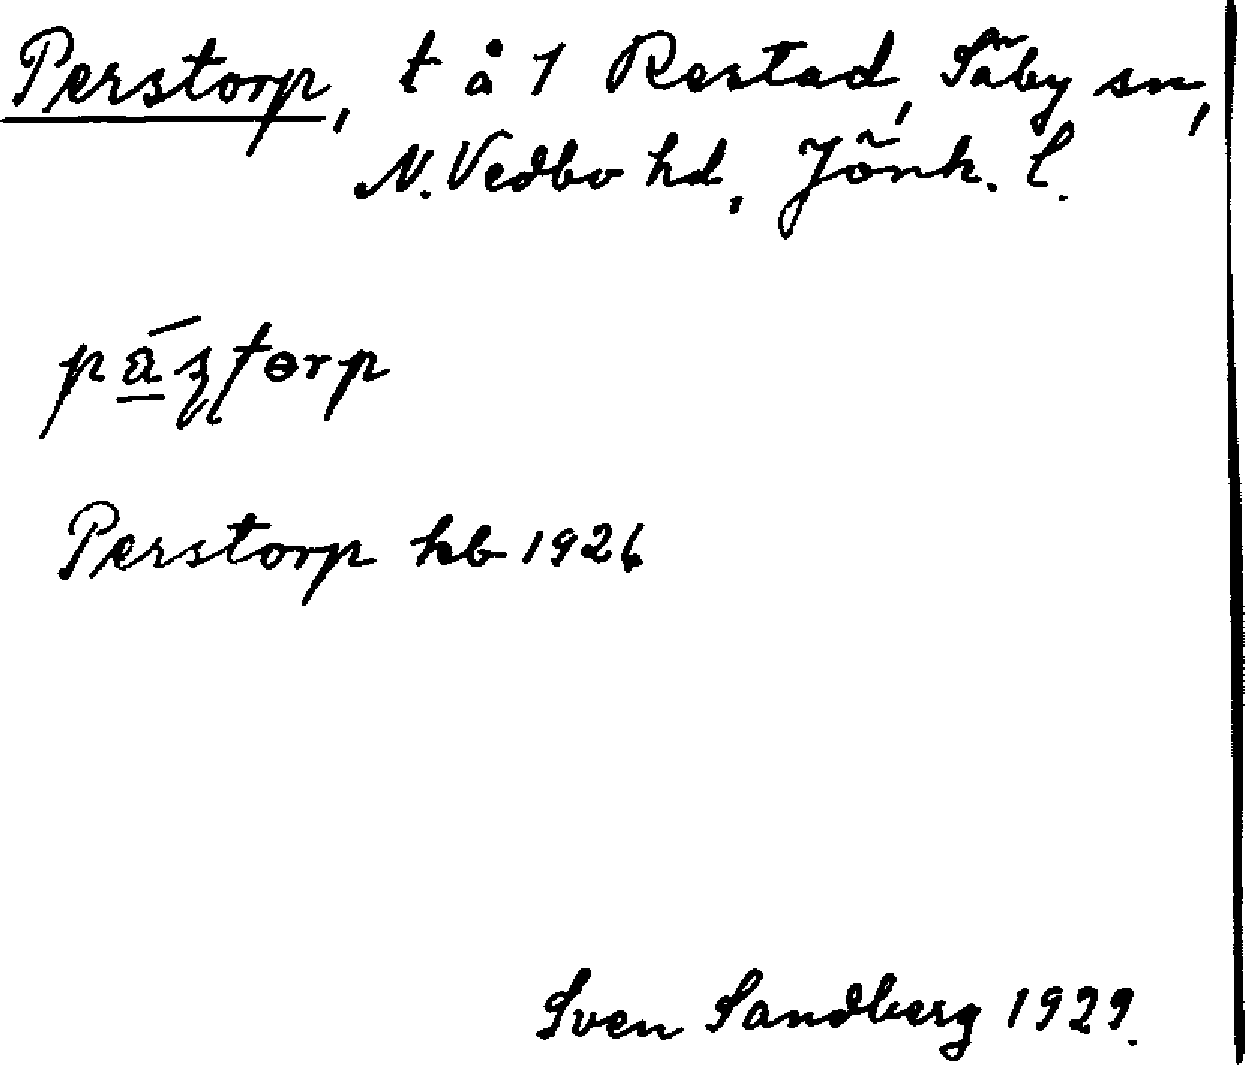 Perstorp, t å 1 Restad, Säby sn,
N. Vedbo hd, Jönk. l.
Perstorp hb 1926
Sven Sandberg 1929.